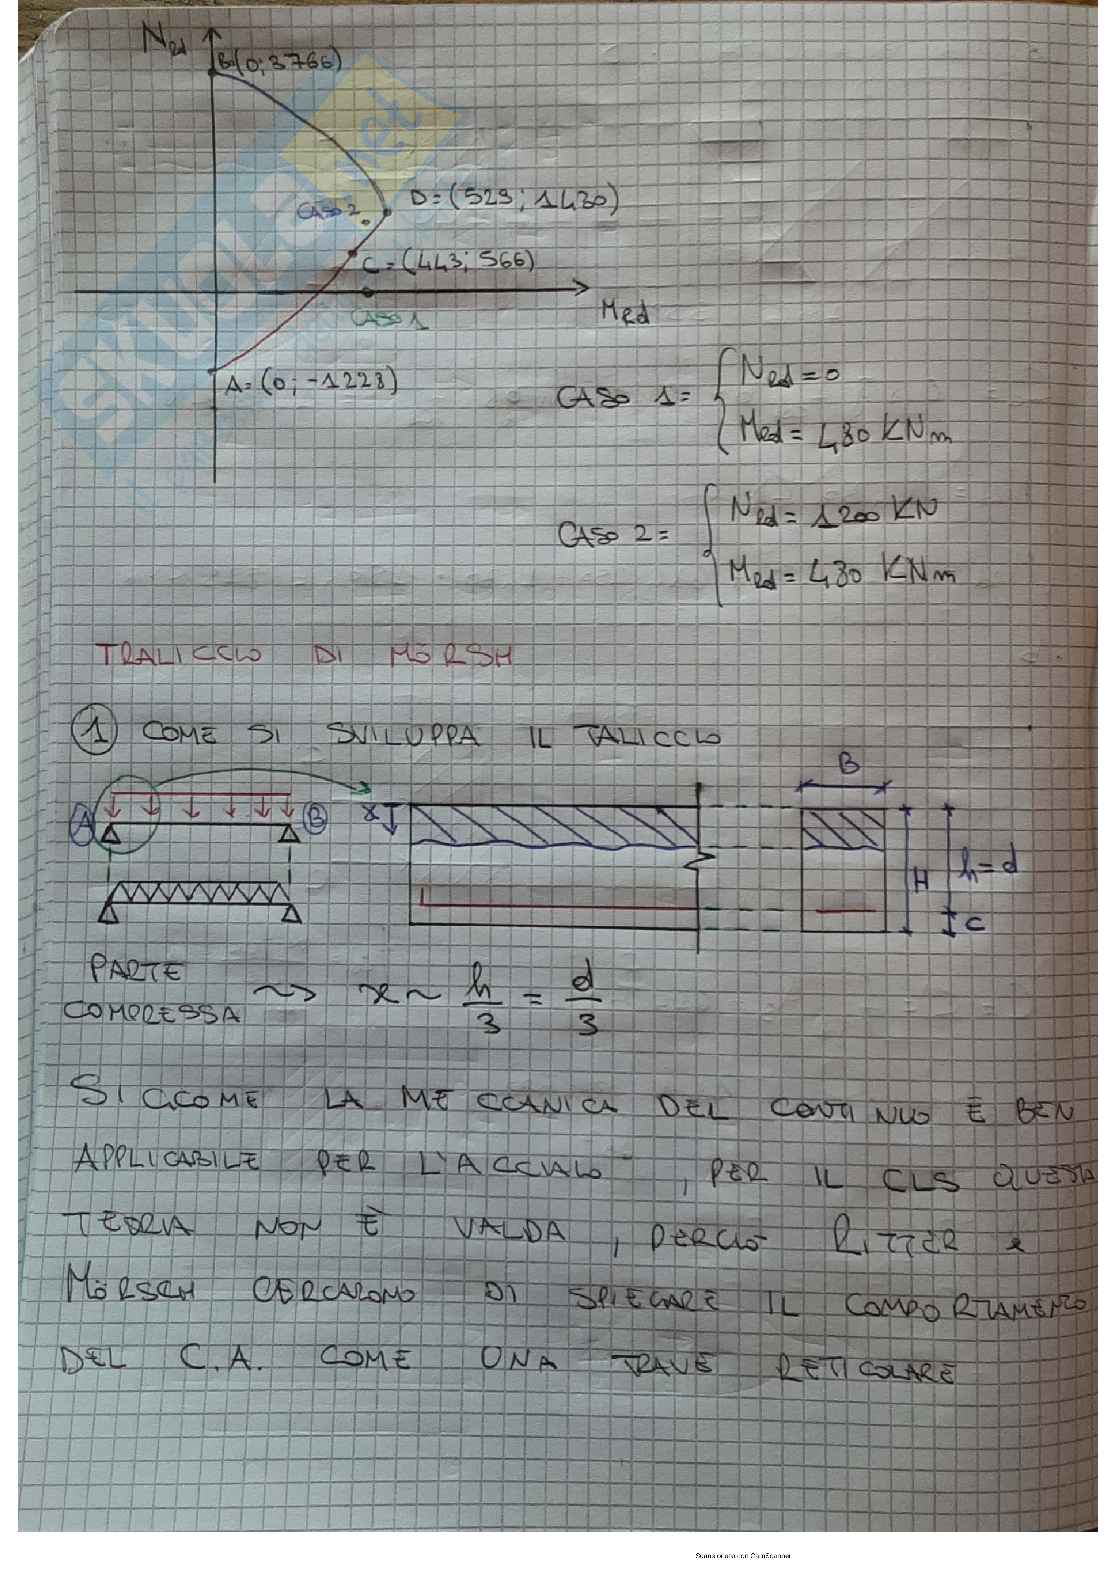 Ned
B(0; 3766)
D=(529; 1430)
CASO 2
C=(443; 566)
Med
CASO 1
A=(0; -1228)
CASO 1= Ned=0
Med= 480 KNm
CASO 2= Ned= 1200 KN
Med= 480 KNm
TRALICCIO DI MÖRSH
1 COME SI SVILUPPA IL TALICCIO
B
A B x
H h=d
c
PARTE
COMPRESSA ~> x ~ h/3 = d/3
SICCOME LA MECCANICA DEL CONTINUO È BEN
APPLICABILE PER L'ACCIAIO, PER IL CLS QUESTA
TEORIA NON È VALDA, PERCIÒ RITTER e
MÖRSCH CERCARONO DI SPIEGARE IL COMPORTAMENTO
DEL C.A. COME UNA TRAVE RETICOLARE
SKUOLA.net
Scansionato con CamScanner